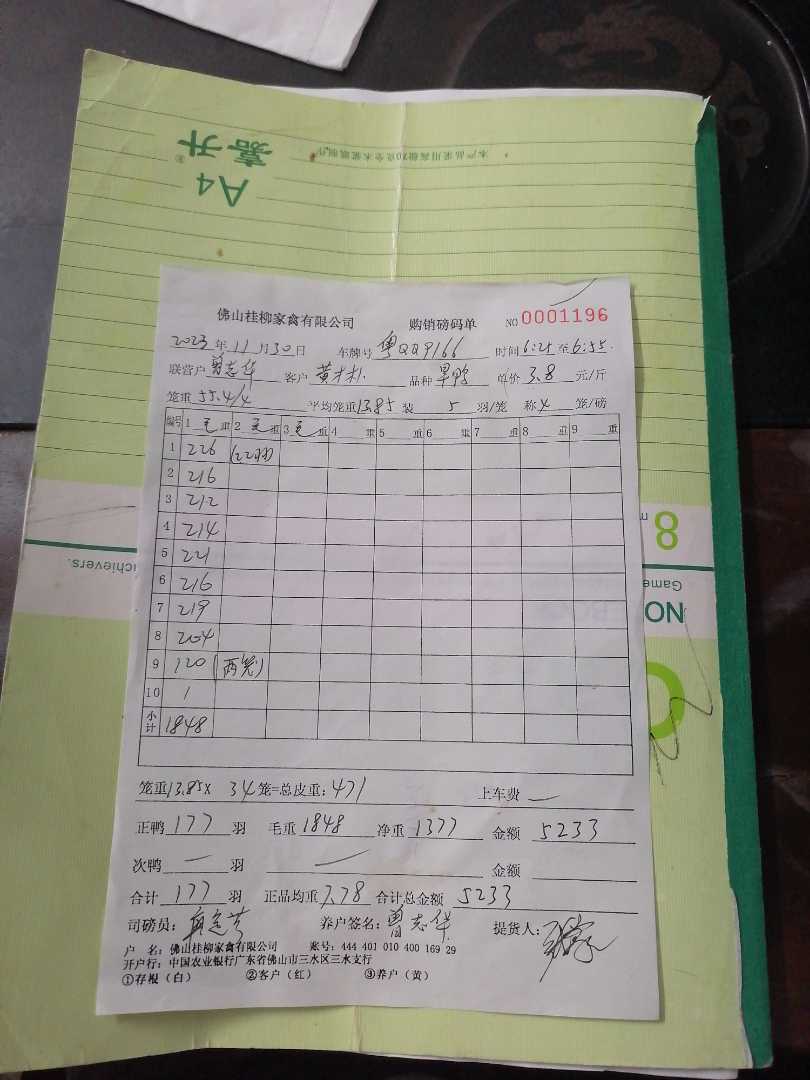 A4
嘉升
本产品采用高级70克全木浆纸制作
佛山桂柳家禽有限公司 购销磅码单 NO 0001196
2023年11月30日 车牌号 粤QQ9166 时间6:25至6:55
联营户 曾志华 客户 品种 旱鸭 单价 3.8 元/斤
笼重 55.4/4 平均笼重13.85 装 5 羽/笼 称 4 笼/磅
编号 1 毛 重 2 毛 重 3 毛 重 4 重 5 重 6 重 7 重 8 重 9 重
1 226 (22羽)
2 216
3 212
4 214
5 221
6 216
7 219
8 204
9 120 (两笼)
10 /
小计 1848
笼重13.85X 34笼=总皮重:471 上车费 —
正鸭 177 羽 毛重 1848 净重 1377 金额 5233
次鸭 — 羽 — 金额
合计 177 羽 正品均重 7.78 合计总金额 5233
司磅员: 养户签名: 曾志华 提货人:
户 名: 佛山桂柳家禽有限公司 账号: 444 401 010 400 169 29
开户行: 中国农业银行广东省佛山市三水区三水支行
①存根(白) ②客户(红) ③养户(黄)
8
Game
NO
chievers.